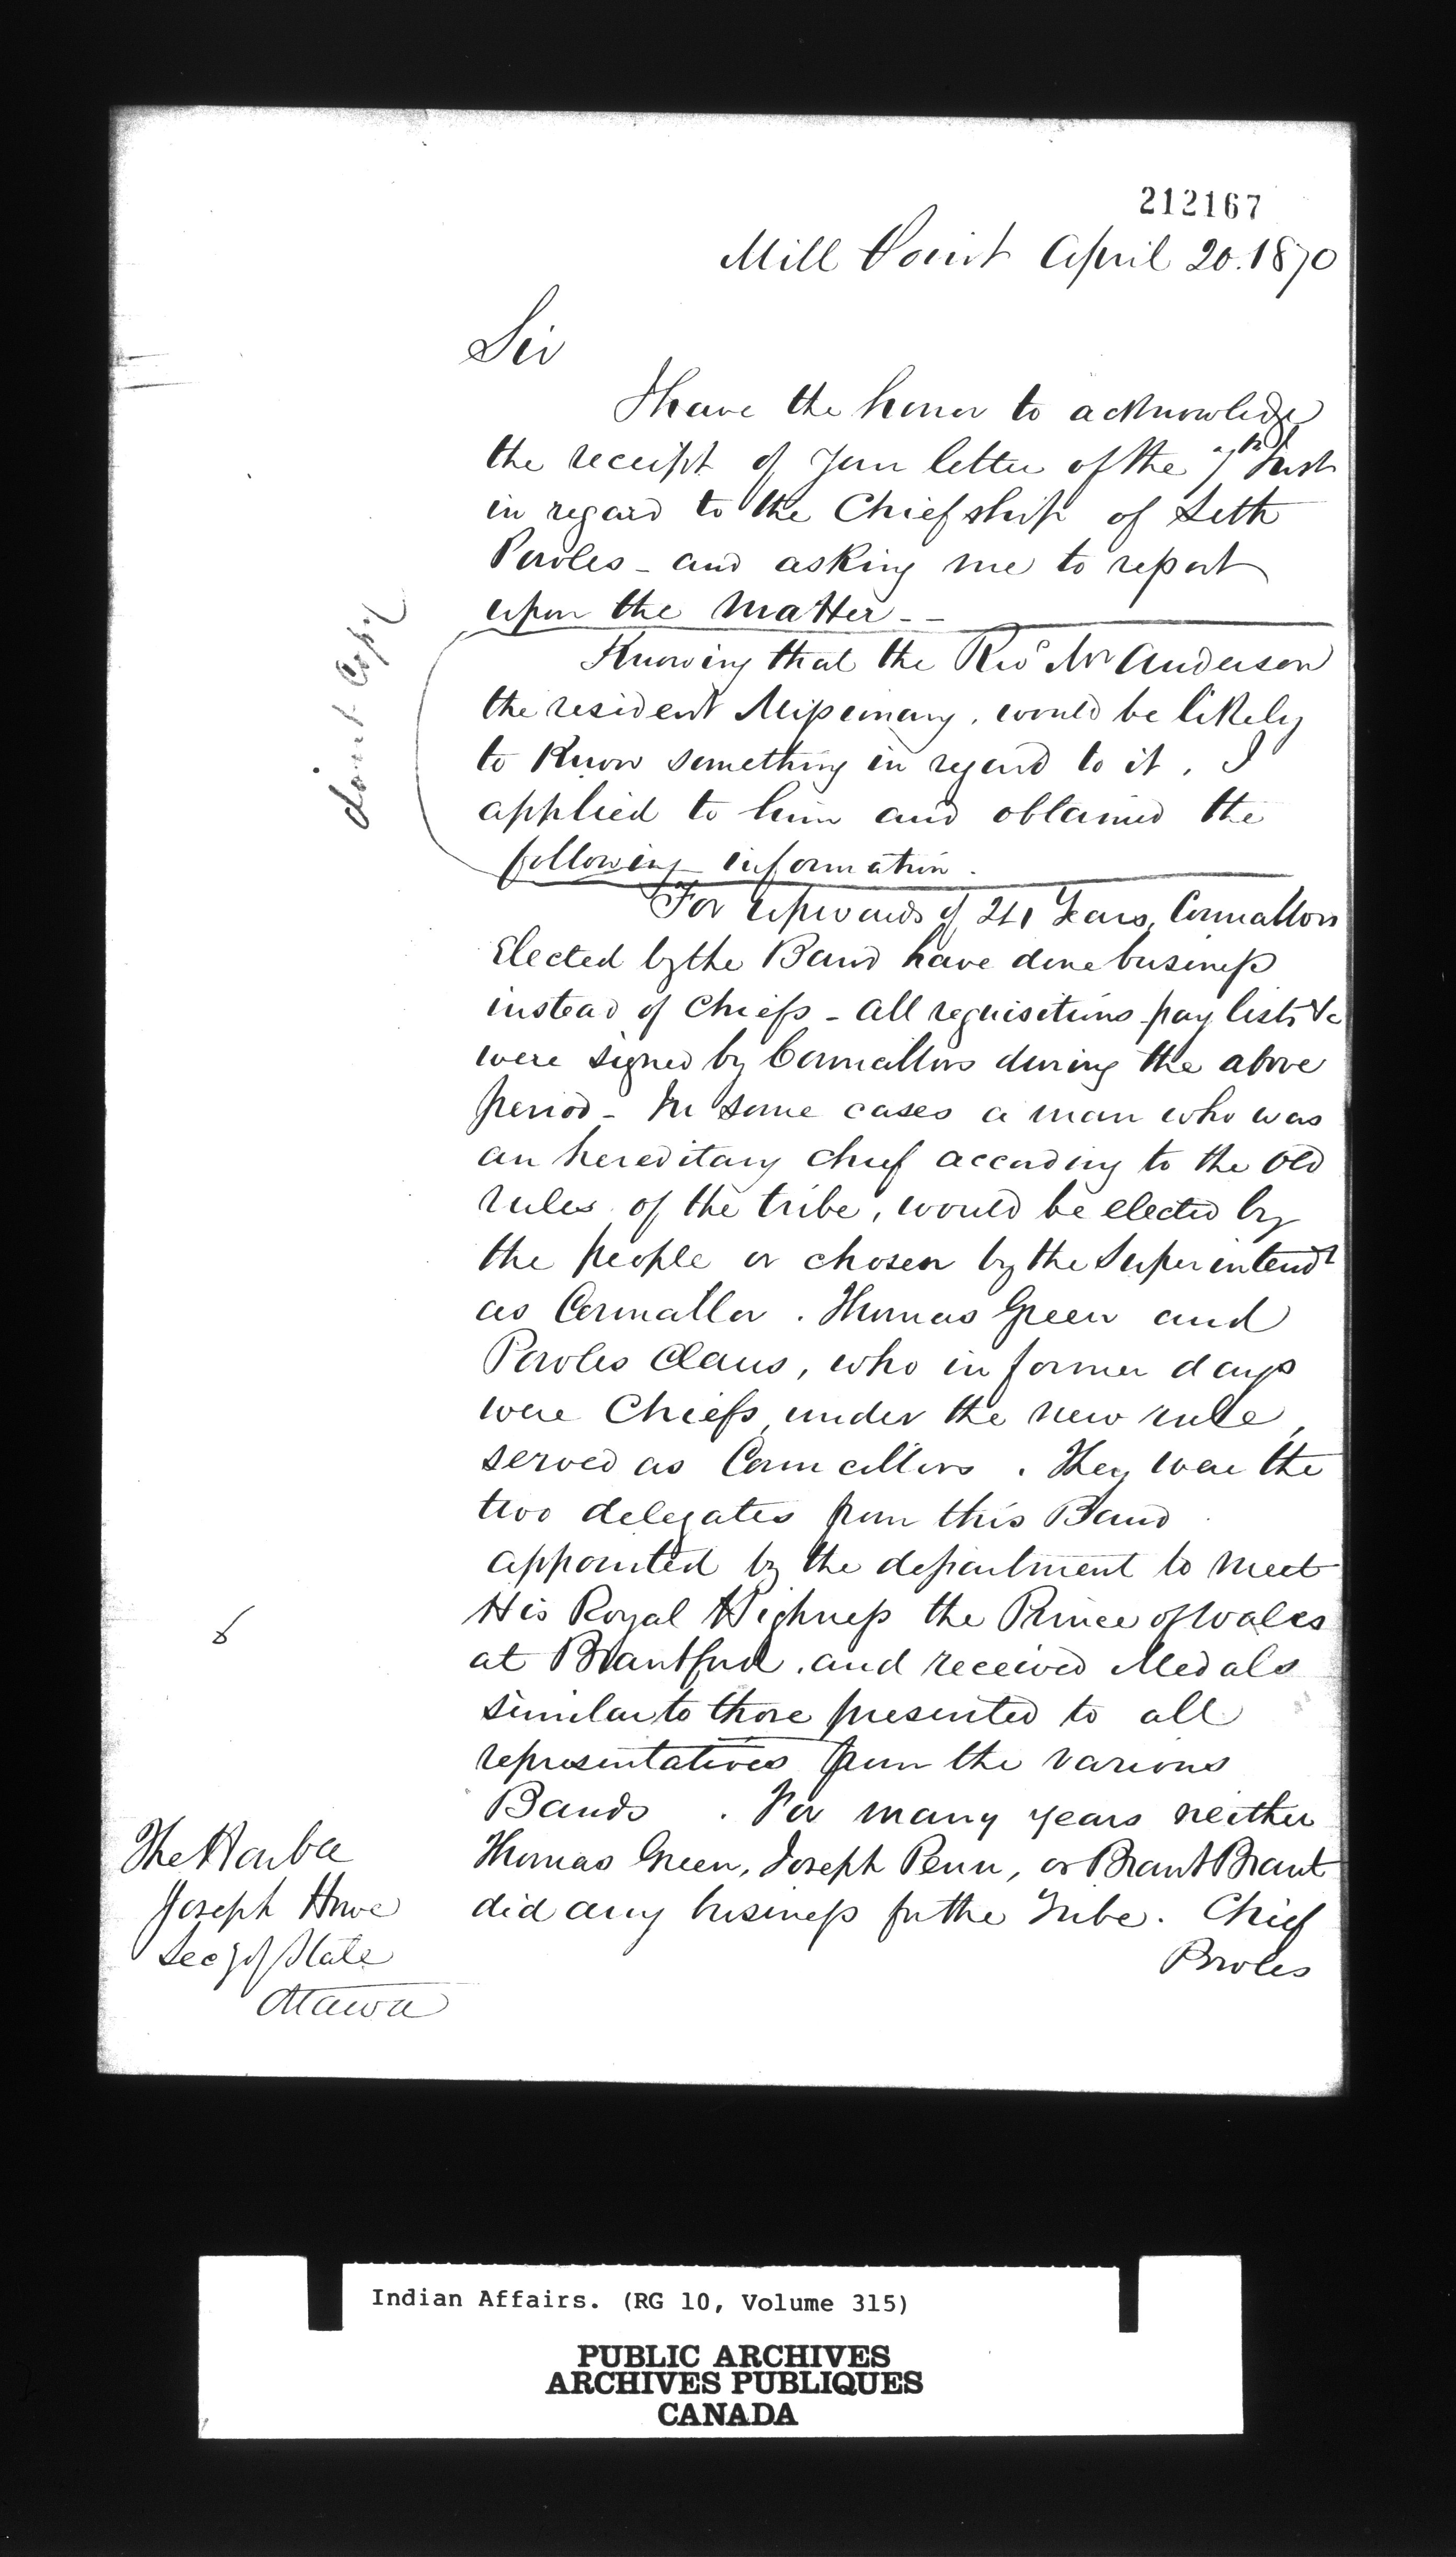 212167
Mill Point April 20. 1870
Sir
I have the honor to acknowledge
the receipt of your letter of the 7th Inst
in regard to the Chiefship of Seth
Powles - and asking me to report
upon the matter - -
dont Copy
Knowing that the Revd Mr Anderson
the resident Missionary, would be likely
to know something in regard to it, I
applied to him and obtained the
following information.
For upwards of Years, Councillors
Elected by the Band have done business
instead of Chiefs - all requisitions pay lists &c
were signed by Councillors during the above
period - In some cases a man who was
an hereditary chief according to the old
rules of the tribe, would be elected by
the people or chosen by the Superintendt
as Councillor. Thomas Green and
Powles Claus, who in former days
were Chiefs, under the new rule,
served as Councillors. They were the
two delegates from this Band
appointed by the department to meet
His Royal Highness the Prince of Wales
at Brantford, and received Medals
similar to those presented to all
representatives from the various
Bands. For many years neither
Thomas Green, Joseph Penn, or Brant Brant
did any business for the Tribe. Chief
Powles
The Honble
Joseph Howe
Secy of State
Ottawa
Indian Affairs. (RG 10, Volume 315)
PUBLIC ARCHIVES
ARCHIVES PUBLIQUES
CANADA